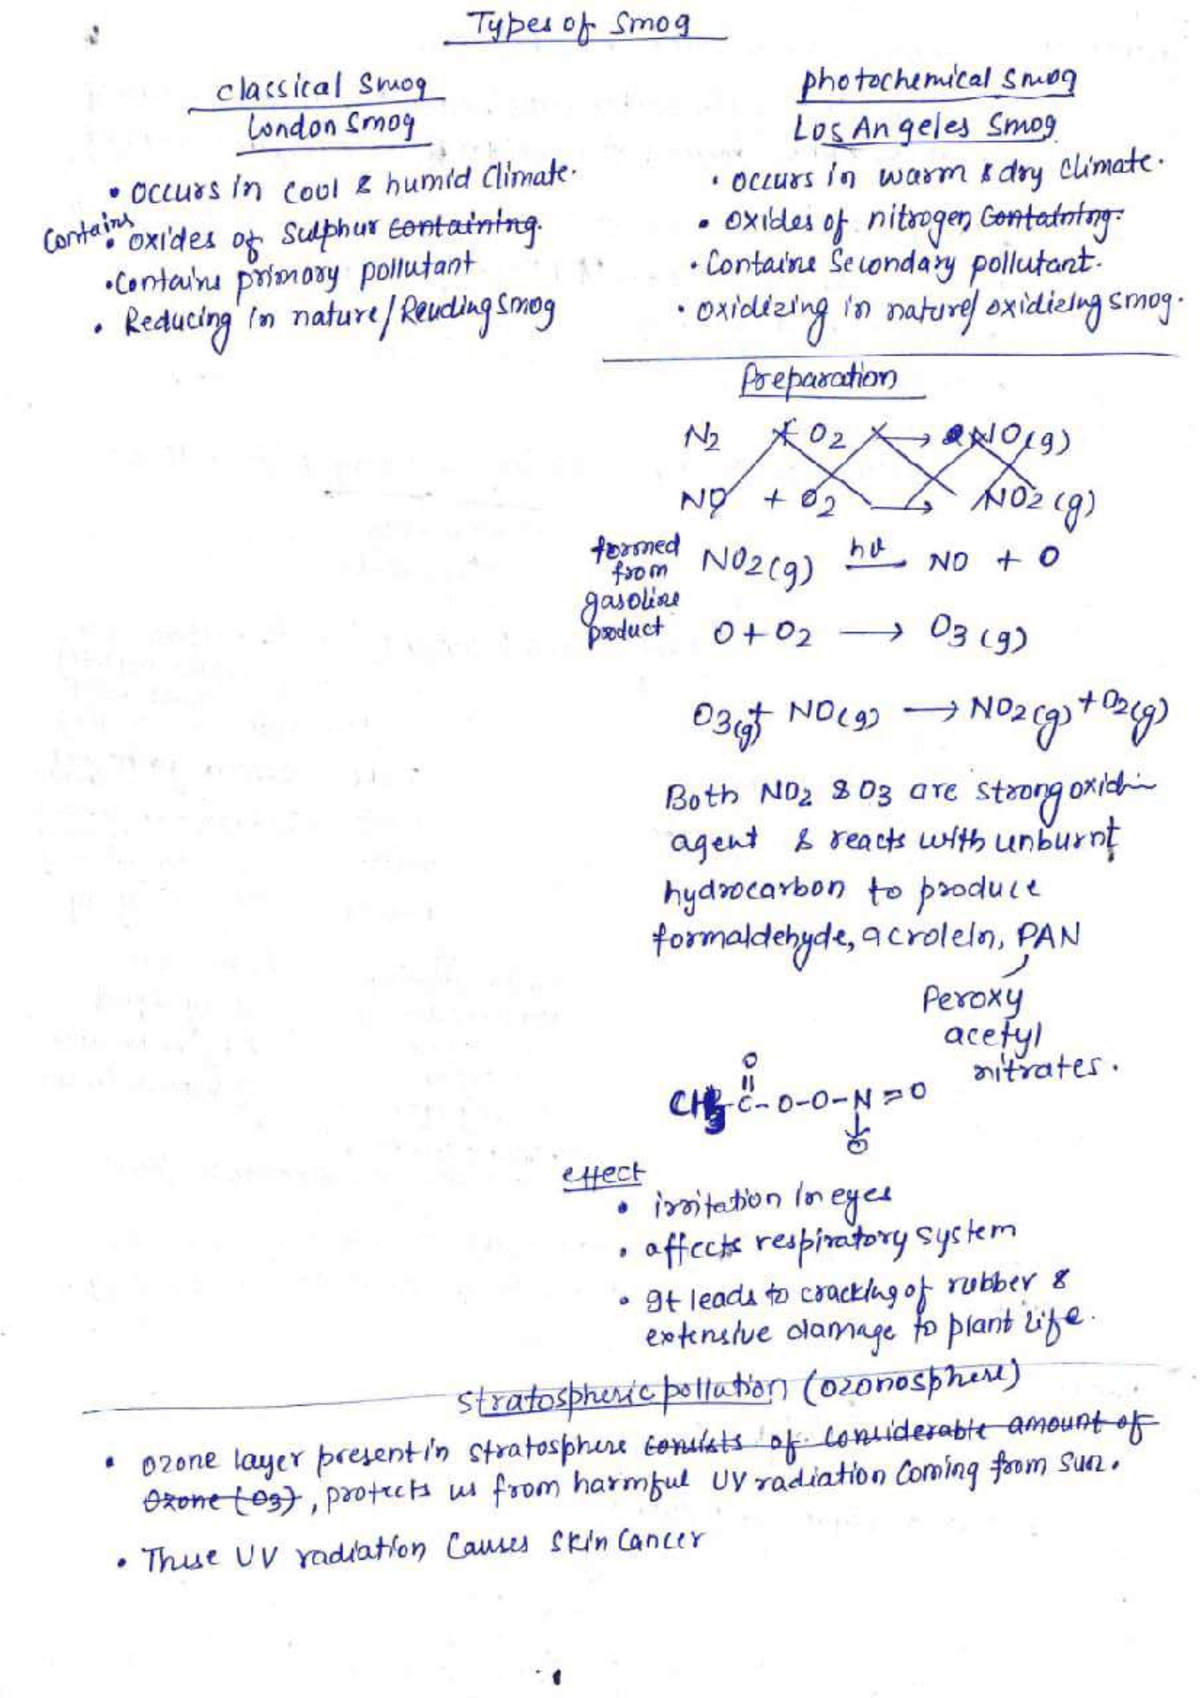 Types of Smog
Classical Smog
London Smog
• Occurs in cool & humid climate.
Contains
• oxides of Sulphur containing.
• Contains primary pollutant
• Reducing in nature/Reuding smog
photochemical smog
Los Angeles Smog
• occurs in warm & dry climate.
• oxides of nitrogen containing.
• Contains Secondary pollutant.
• oxidizing in nature/ oxidizing smog.
Preparation
N2 + O2 → 2NO(g)
NO + O2 → NO2(g)
formed
from
gasoline
product
NO2(g) hν NO + O
O + O2 → O3(g)
O3(g) + NO(g) → NO2(g) + O2(g)
Both NO2 & O3 are strong
agent & reacts with unburnt
hydrocarbon to produce
formaldehyde, acrolein, PAN
Peroxy
acetyl
nitrates.
O
||
CH3-C-O-O-N=O
↓
O
effect
• irritation in eyes
• affects respiratory system
• It leads to cracking of rubber &
extensive damage to plant life.
Stratospheric pollution (ozonosphere)
• ozone layer present in stratosphere consists of considerable amount of
Ozone (O3), protects us from harmful UV radiation coming from sun.
• These UV radiation causes skin cancer